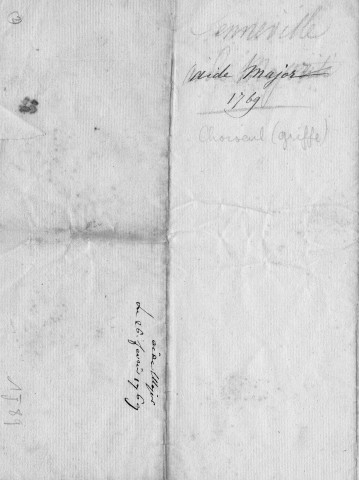 Janneville
aide Major
1769
Choiseul (griffe)
aide Major
du 26 fevrier 1769
1J89